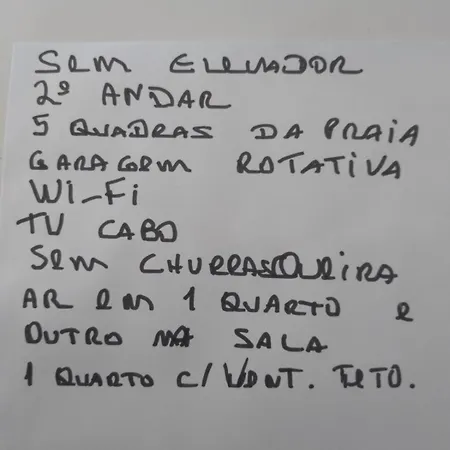 SEM ELEVADOR
2º ANDAR
5 QUADRAS DA PRAIA
GARAGEM ROTATIVA
WI-Fi
TV CABO
SEM CHURRASQUEIRA
AR EM 1 QUARTO e
OUTRO NA SALA
1 QUARTO C/ VENT. TETO.